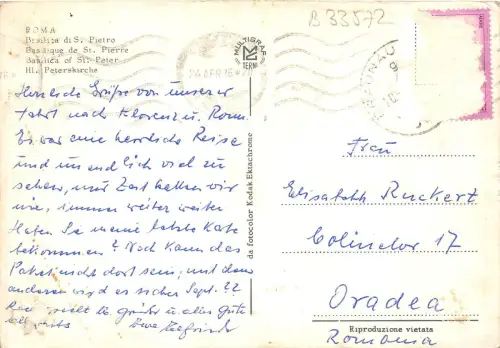 B 33572
ROMA
Basilica di S. Pietro
Basilique de St. Pierre
Basilica of St. Peter
Hl. Peterskirche
MULTIGRAF
TERNI
Herzliche Grüße von unserer
Fahrt nach Florenz u. Rom.
Es war eine herrliche Reise
und unendlich viel zu
sehen, nur Zeit hatten wir
nie, immer weiter weiter
Haben Sie meine letzte Karte
bekommen? Noch kann das
Paket nicht dort sein, mit dem
anderen wird es sicher Sept. 22
viele Grüße u. alles Gute
Ihre
da fotocolor Kodak Ektachrome
Frau
Elisabeth Ruckert
Colinelor 17
Oradea
Romania
Riproduzione vietata